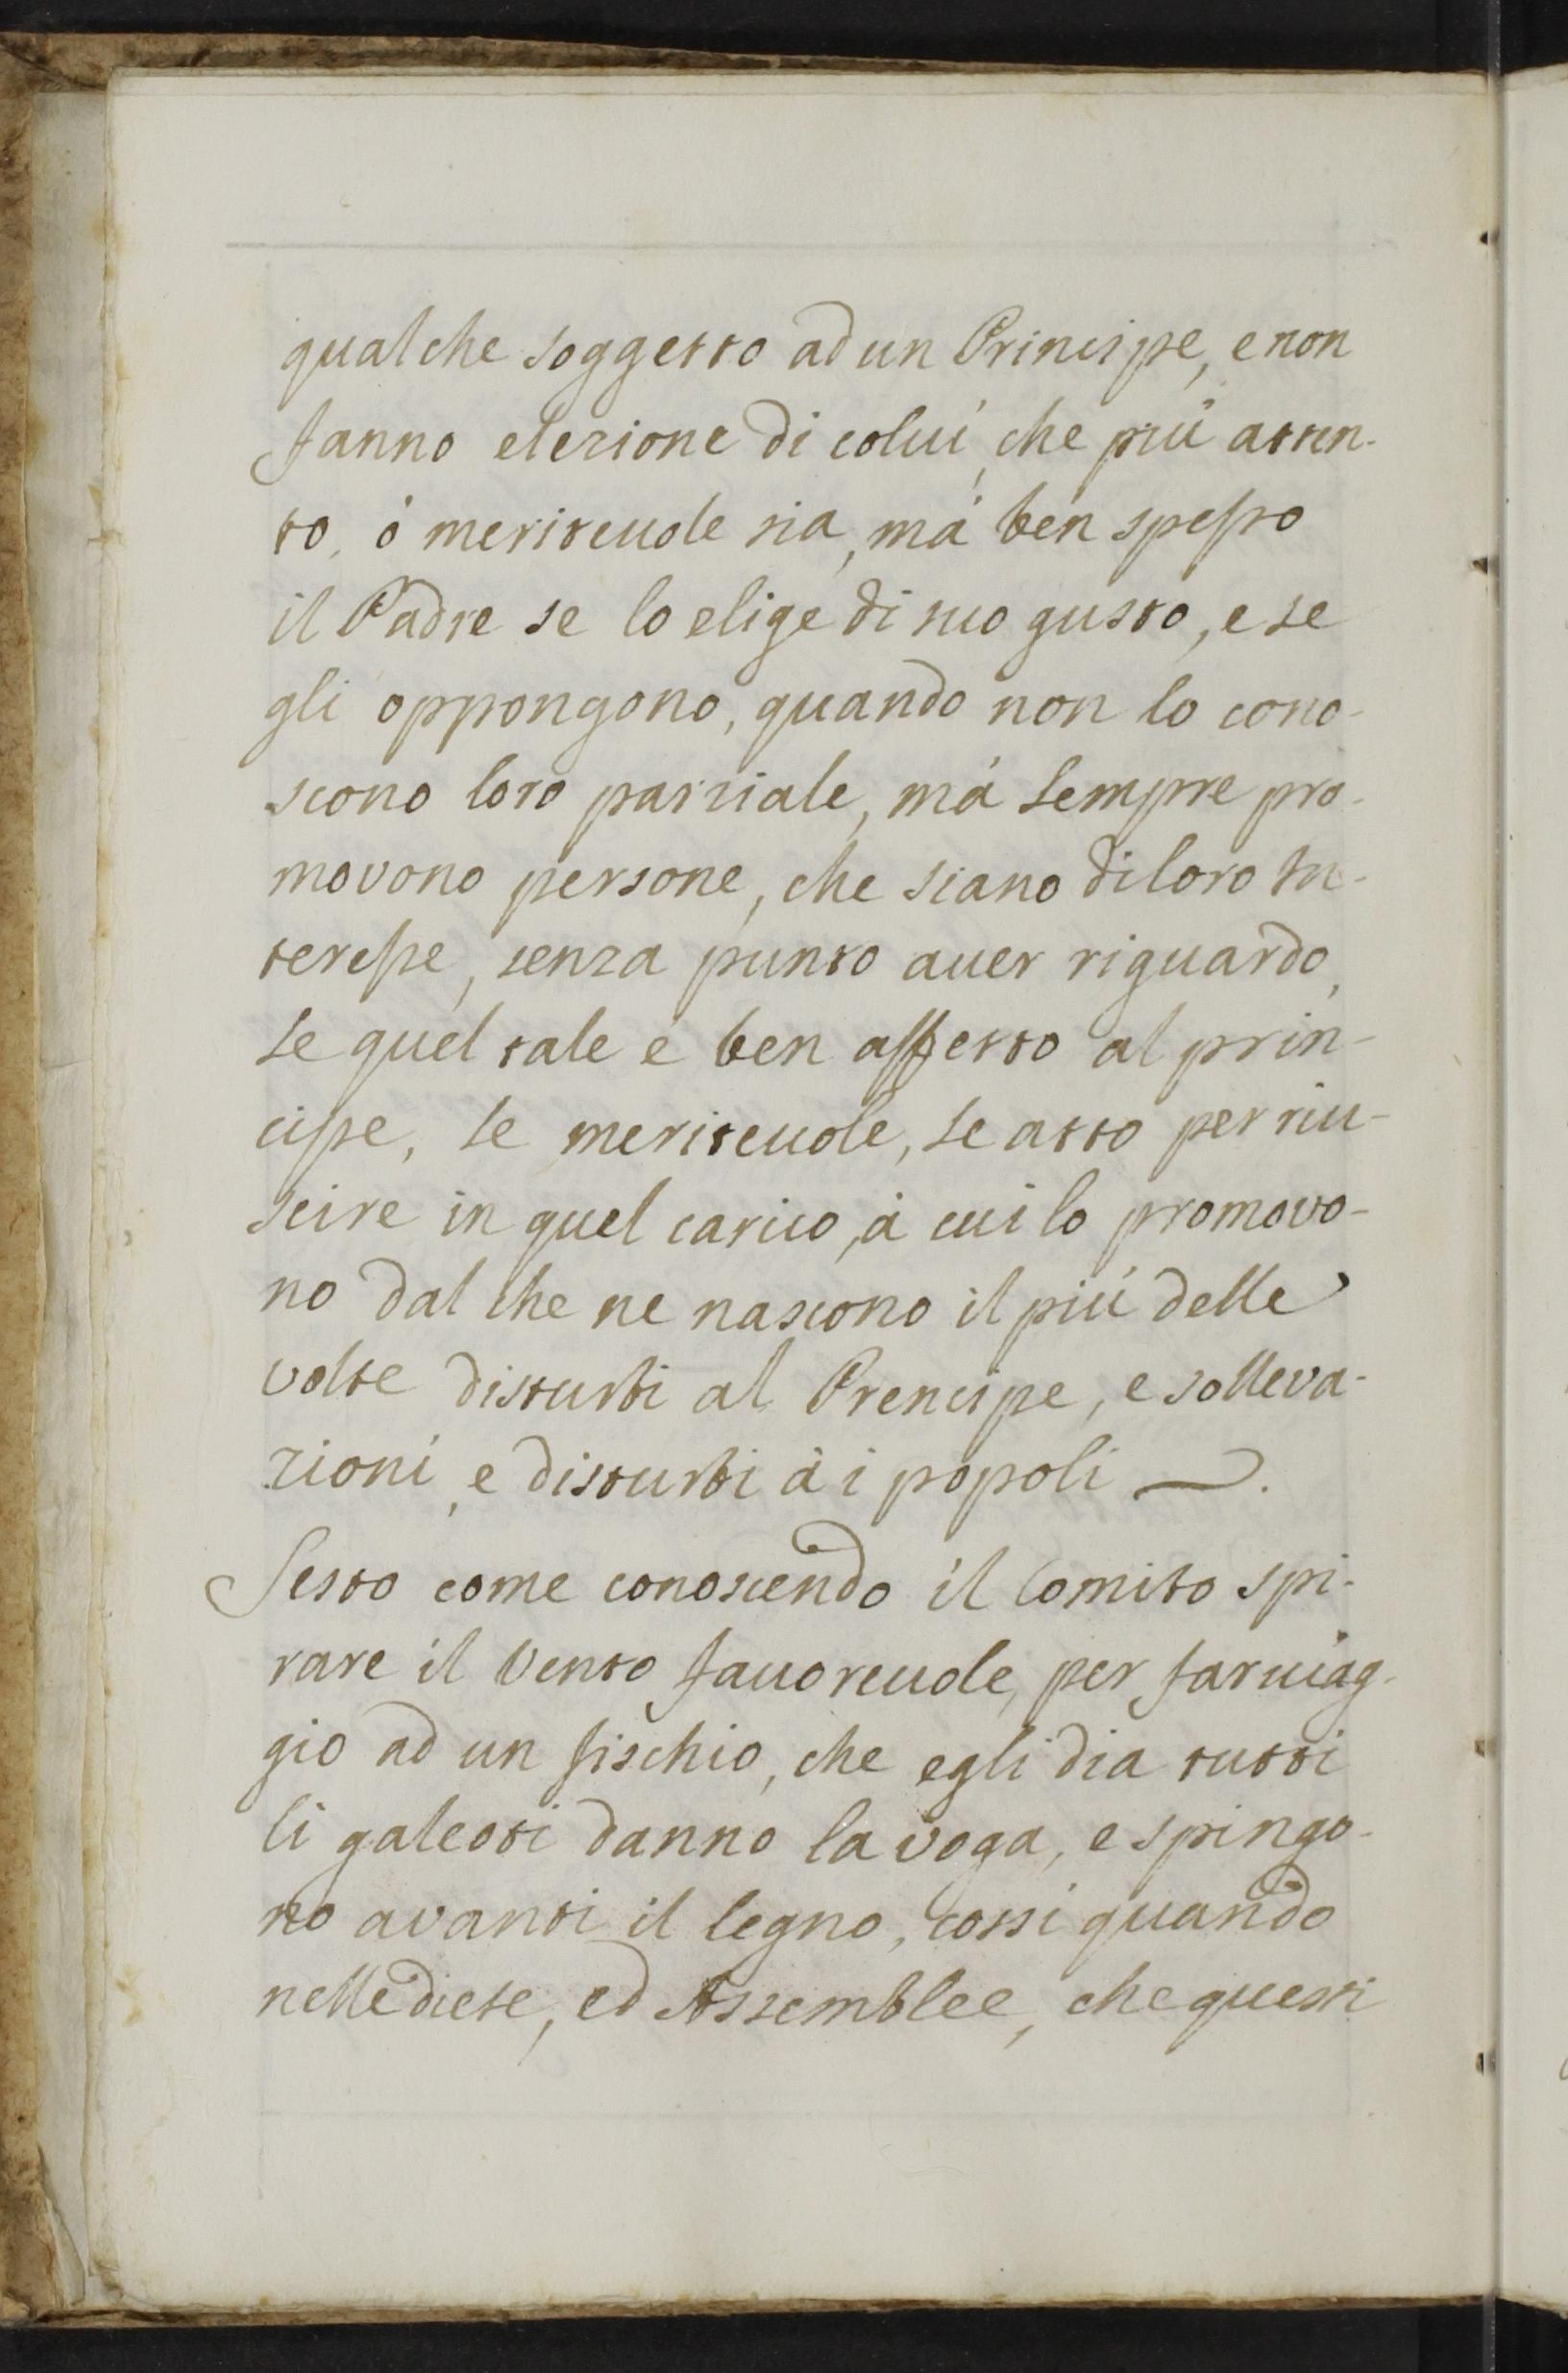 qualche soggetto ad un Principe, e non
fanno elezione di colui, che più atten-
to, ò meriteuole sia, mà ben spesso
il Padre se lo elige di suo gusto, e se
gli oppongono, quando non lo cono-
scono loro parziale, mà sempre pro-
movono persone, che siano di loro In-
teresse, senza punto auer riguardo,
se quel tale è ben affetto al prin-
cipe, se meriteuole, se atto per riu-
scire in quel carico, à cui lo promovo-
no dal che ne nascono il più delle
volte disturbi al Prencipe, e solleva-
zioni, e disturbi à i popoli.
Sesto come conoscendo il Comito spi-
rare il Vento fauoreuole, per far uiag-
gio ad un fischio, che egli dia tutti
li galeotti danno la voga, e spingo-
no avanti il legno, cossì quando
nelle diete, ed Assemblee, che questi